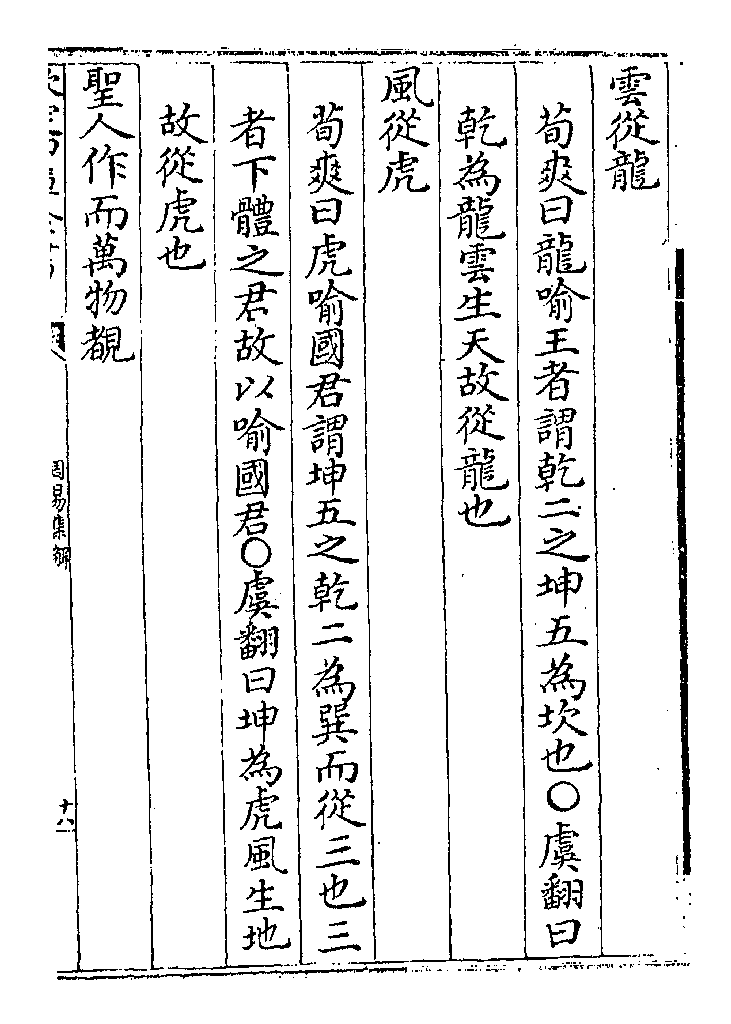 雲從龍
荀爽曰龍喻王者謂乾二之坤五為坎也〇虞翻曰
乾為龍雲生天故從龍也
風從虎
荀爽曰虎喻國君謂坤五之乾二為巽而從三也三
者下體之君故以喻國君〇虞翻曰坤為虎風生地
故從虎也
聖人作而萬物覩
周易集解
十八